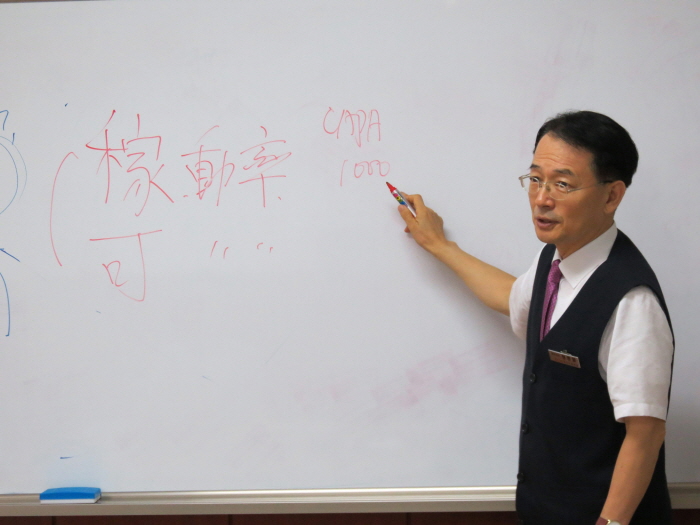 稼動率 CAPA
1000
可 〃 〃